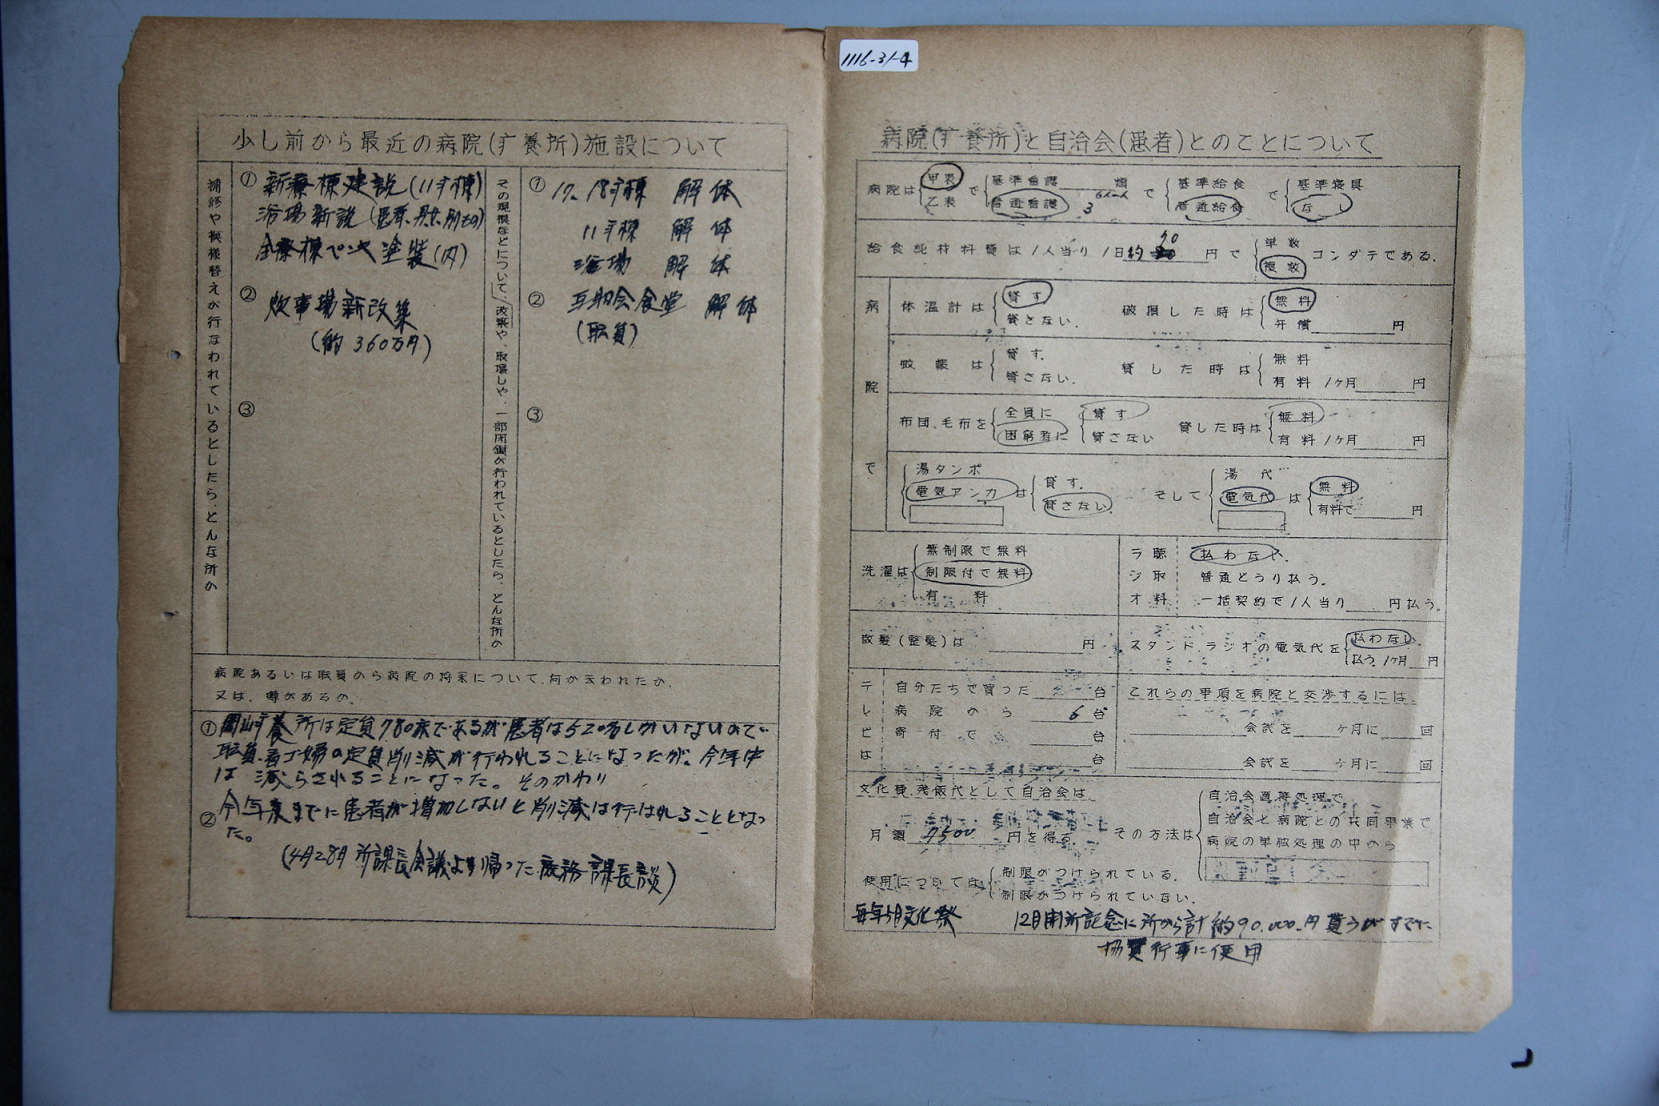 1116-31-4
少し前から最近の病院(疒養所)施設について
補修や模様替えが行なわれているとしたら、どんな所の
① 新療棟建設(11疒棟)
浴場新設(医療、男女別もの)
全療棟ペンキ塗装(内)
② 炊事場新改築
(約360万円)
③
その規模などについて、改築や、取壊しや、一部閉鎖が行われているとしたら、どんな所の
① 17、18疒棟 解体
11疒棟 解体
浴場 解体
② 互助会食堂 解体
(職員)
③
病院あるいは職員から病院の将来について、何か云われたか、
又は、噂があるか、
① 岡山疒養所は定員780床であるが患者は520名しかいないので
職員、看ゴ婦の定員削減が行われることになったが、今年中
は 減らされることになった。そのかわり
② 今年末までに患者が増加しないと削減は行はれることとなっ
た。
(4月28日 所課長会議より帰った庶務課長談)
病院(疒養所)と自治会(患者)とのことについて
病院は 甲表 乙表 で 基準看護 普通看護 3 類 で 基準給食 普通給食 で 基準寝具 なし
給食純材料費は1人当り1日約 70 円で 単数 複数 コンダテである.
病院で
体温計は 貸す 貸さない. 破損した時は 無料 弁償 円
蚊帳は 貸す. 貸さない. 貸した時は 無料 有料 1ヶ月 円
布団、毛布を 全員に 困窮者に 貸す 貸さない 貸した時は 無料 有料 1ヶ月 円
湯タンポ 電気アンカ は 貸す. 貸さない. そして 湯代 電気代 は 無料 有料で 円
洗濯は 無制限で無料 制限付で無料 有料
ラジオ聴取料 払わない. 普通どうり払う. 一括契約で1人当り 円払う.
散髪(整髪)は 円
スタンド、ラジオの電気代を 払わない. 払う. 1ヶ月 円
テレビは
自分たちで買った 台
病院のから 6 台
寄付で 台
台
これらの事項を病院と交渉するには
会議を ヶ月に 回
会議を ヶ月に 回
文化費、残飯代として自治会は
月額 7500 円を得る その方法は
自治会直接処理で
自治会と病院との共同事業で
病院の単独処理の中から
使用については 制限がつけられている. 制限がつけられていない.
毎年5月文化祭 12月開所記念に所から計約90.000.円貰うがすでに
協賛行事に使用